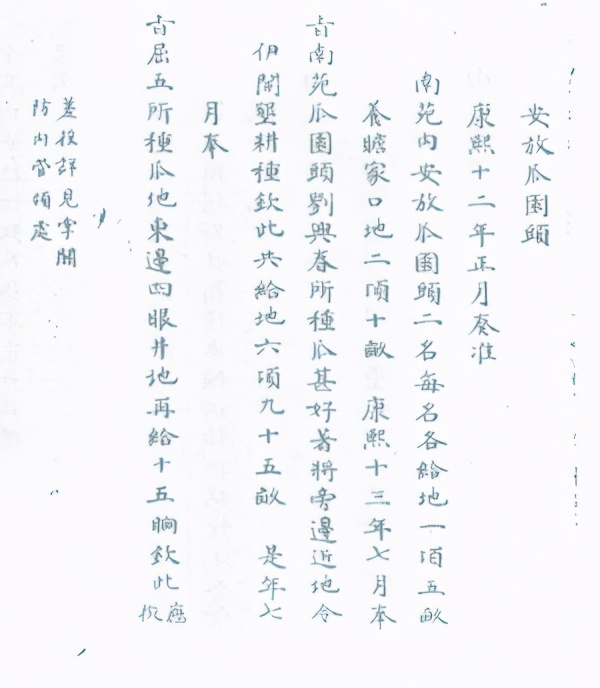 安放瓜園頭
康熙十二年正月奏准
南苑内安放瓜園頭二名每名各給地一頃五畝
養贍家口地二頃十畝 康熙十三年七月奉
旨南苑瓜園頭劉興春所種瓜甚好著將旁邊近地令
伊開墾耕種欽此共給地六頃九十五畝 是年七
月奉
旨屈五所種瓜地東邊四眼井地再給十五晌欽此 應
差役詳見掌關
防内管領處